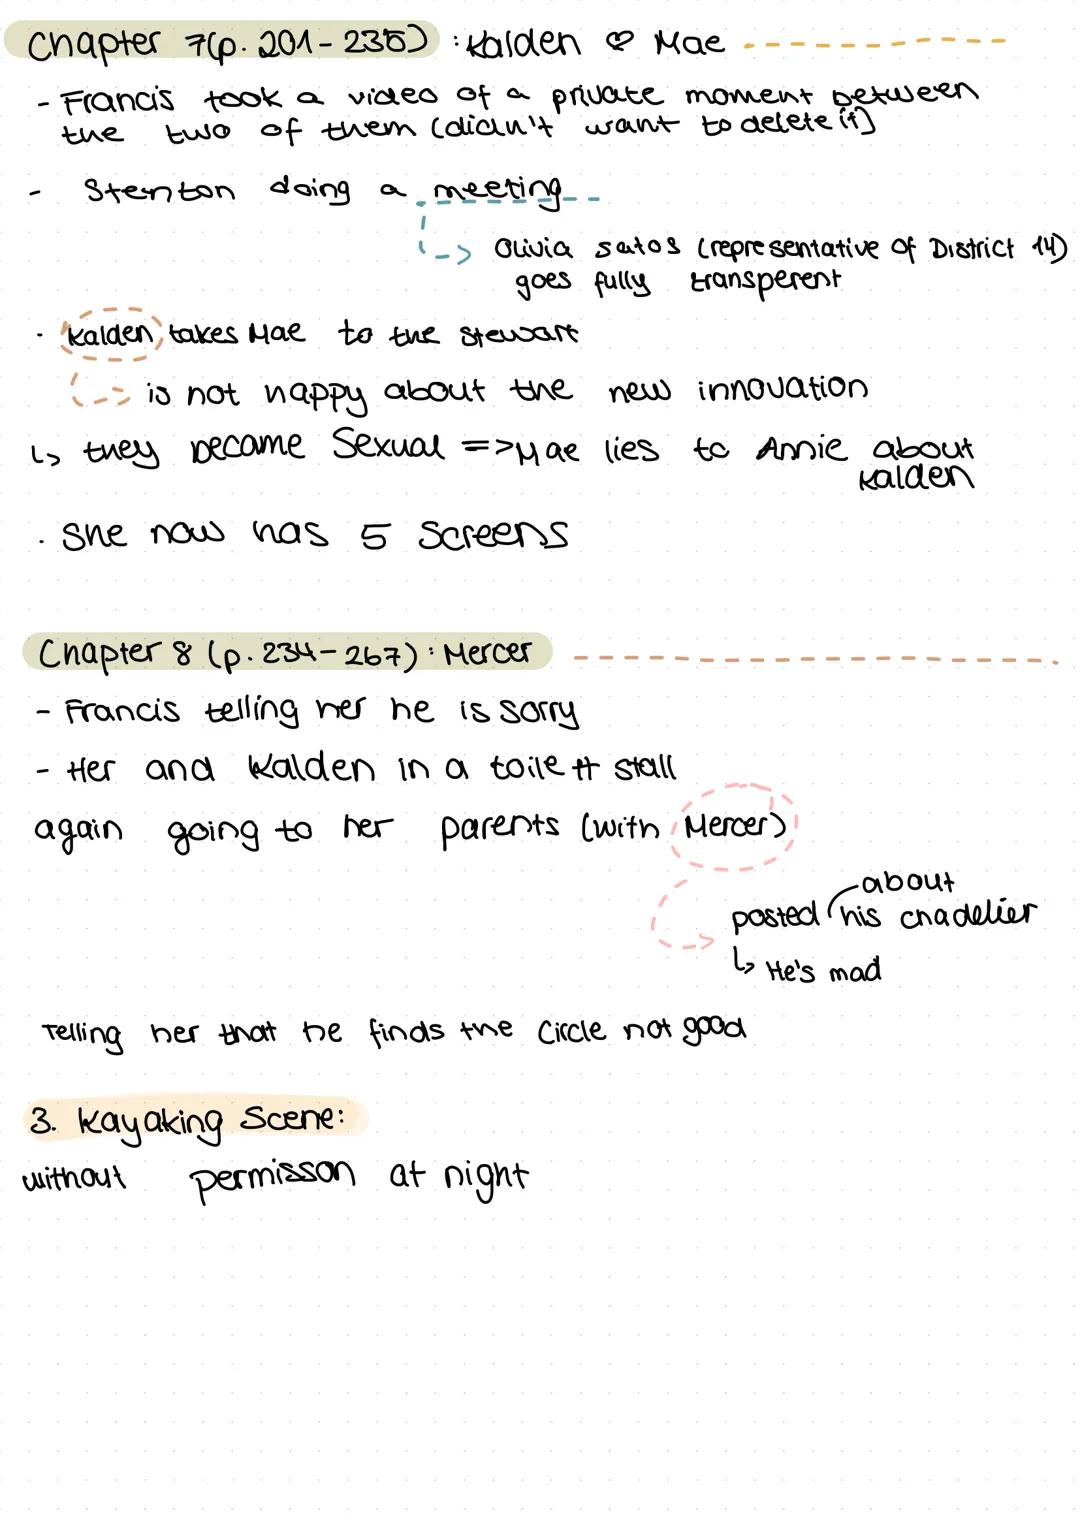 Chapter 7(p. 201-235) : Kalden ♡ Mae
- Francis took a video of a private moment between
the two of them (didn't want to delete it)
- Stenton doing a meeting
-> Olivia satos (representative of District 14)
goes fully transperent
· Kalden takes Mae to the stewart
-> is not happy about the new innovation
↳ they became Sexual => Mae lies to Annie about
Kalden
· She now has 5 Screens
Chapter 8 (p. 234-267) : Mercer
- Francis telling her he is sorry
- Her and Kalden in a toilett stall
again going to her parents (with Mercer)
about
posted his chadelier
↳ He's mad
Telling her that he finds the Circle not good
3. Kayaking Scene:
without permisson at night